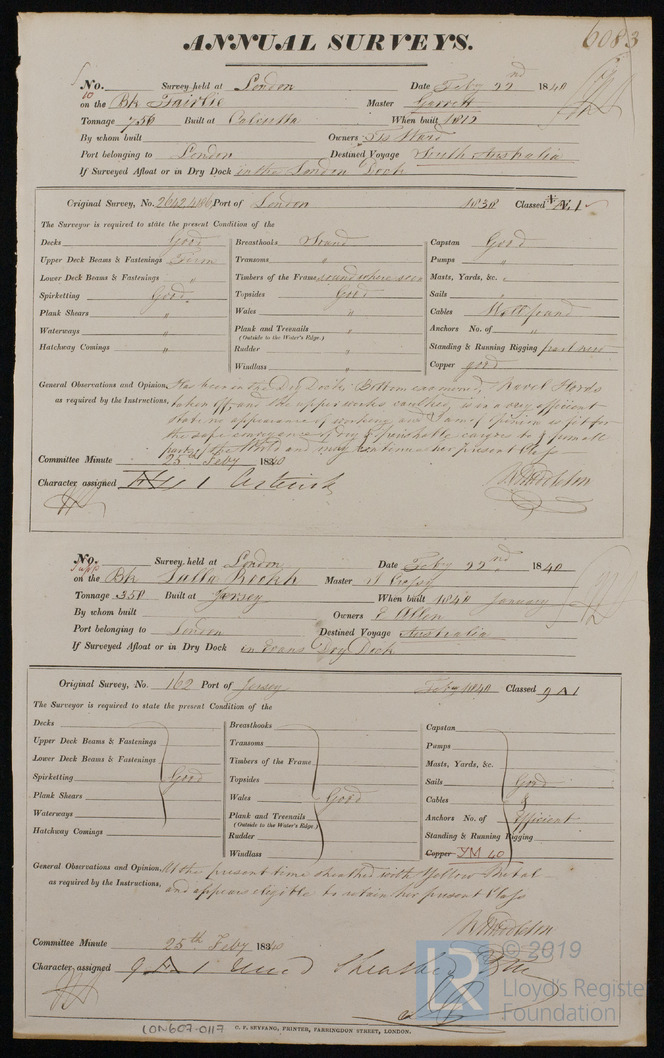 6083
ANNUAL SURVEYS.
No. Survey held at London Date Feby 22nd 1840
10
on the Bk Fairlie Master Garrett
Tonnage 756 Built at Calcutta When built 1812
By whom built Owners Ward
Port belonging to London Destined Voyage South Australia
If Surveyed Afloat or in Dry Dock in the London Dock
Original Survey, No. Port of London 1838 Classed Æ 1
The Surveyor is required to state the present Condition of the
Decks Good Breasthooks Sound Capstan Good
Upper Deck Beams & Fastenings Firm Transoms " Pumps "
Lower Deck Beams & Fastenings " Timbers of the Frame sound where seen Masts, Yards, &c. "
Spirketting Good Topsides Good Sails "
Plank Shears " Wales " Cables Well found
Waterways " Plank and Treenails " Anchors No. of "
(Outside to the Water's Edge.)
Hatchway Comings " Rudder " Standing & Running Rigging part new
Windlass " Copper good
General Observations and Opinion, Has been in the Dry Dock Bottom examined,
as required by the Instructions, taken off, and the upper works caulked, is in a very efficient
state no appearance of working and I am of opinion is fit for
the safe conveyance of dry & perishable cargoes to & from all
parts of the World and may continue her present Class
Committee Minute 25th Feby 1840
Character assigned Æ 1 Asterisk
No. Survey held at London Date Feby 22nd 1840
on the Bk Lalla Rookh Master
Tonnage 358 Built at Jersey When built 1840 January
By whom built Owners E Allen
Port belonging to London Destined Voyage Australia
If Surveyed Afloat or in Dry Dock in Dry Dock
Original Survey, No. 162 Port of Jersey Feby 1840 Classed 9 A 1
The Surveyor is required to state the present Condition of the
Decks Breasthooks Capstan
Upper Deck Beams & Fastenings Transoms Pumps
Lower Deck Beams & Fastenings Timbers of the Frame Masts, Yards, &c.
Spirketting Good Topsides Sails Good
Plank Shears Wales Good Cables &
Waterways Plank and Treenails Anchors No. of Efficient
(Outside to the Water's Edge.)
Hatchway Comings Rudder Standing & Running Rigging
Windlass Copper YM 40
General Observations and Opinion, At the present time sheathed with Yellow Metal
as required by the Instructions, and appears eligible to retain her present Class
Committee Minute 25th Feby 1840
Character assigned 9 A 1
LON607-0117
C. F. SEYFANG, PRINTER, FARRINGDON STREET, LONDON.
LR © 2019
Lloyd's Register
Foundation